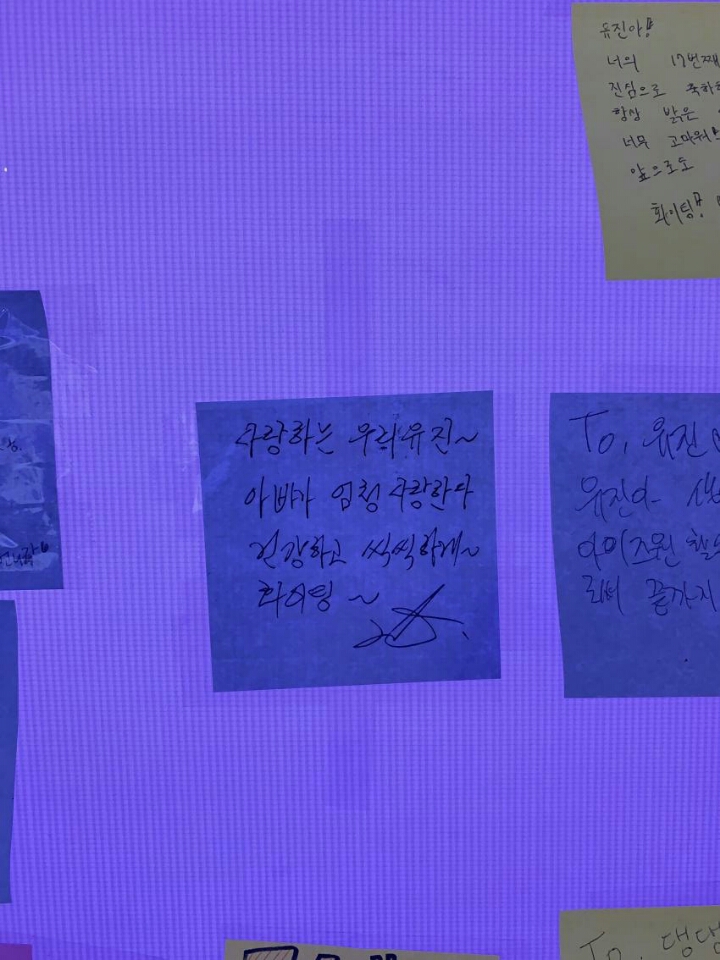 유진아!
너의 17번째
진심으로 축하
항상 밝은
너무 고마워
앞으로도
화이팅!!
사랑하는 우리유진~
아빠가 엄청 사랑한다
건강하고 씩씩하게~
화이팅~
To. 유진
유진아
아이즈원
리더 끝까지
To. 댕댕